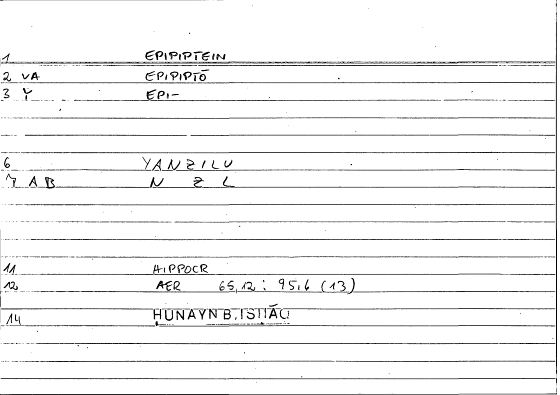 1 EPIPIPTEIN
2 VA EPIPIPTŌ
3 Y EPI-
6 YANZILU
7 AB N Z L
11 HIPPOCR
12 AER 65,12 : 95,6 (13)
14 ḤUNAYN B. ISḤĀQ